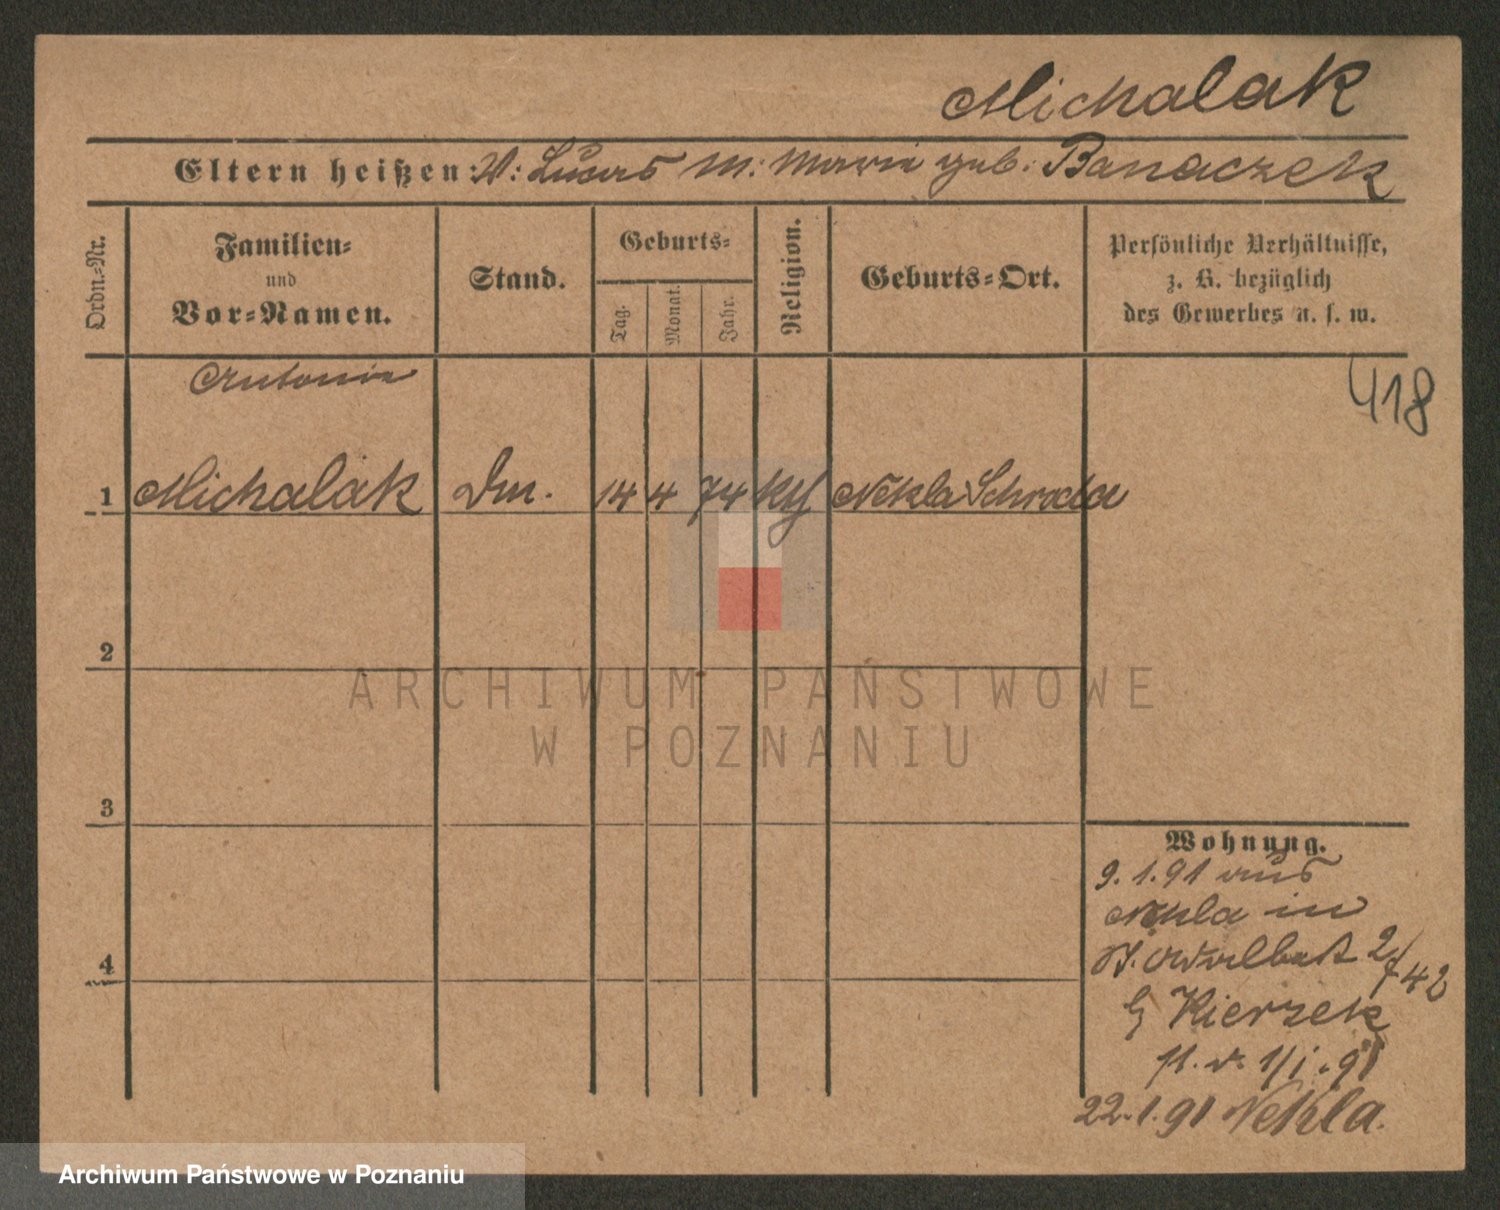 Michalak
Eltern heißen: V: Lucas M: Maria geb. Banaczek
Ordn.=Nr.
Familien=
und
Vor=Namen.
Stand.
Geburts=
Tag.
Monat.
Jahr.
Religion.
Geburts=Ort.
Persönliche Verhältnisse,
z. B. bezüglich
des Gewerbes u. s. w.
418
Antonie
1 Michalak 14 4 74 Nekla Schroda
2
3
4
Wohnung.
9. 1. 91 aus
Nekla in
St. Adalbert 2/
742
Kierzek
1/1. 91
22. 1. 91 Nekla.
ARCHIWUM PAŃSTWOWE
W POZNANIU
Archiwum Państwowe w Poznaniu